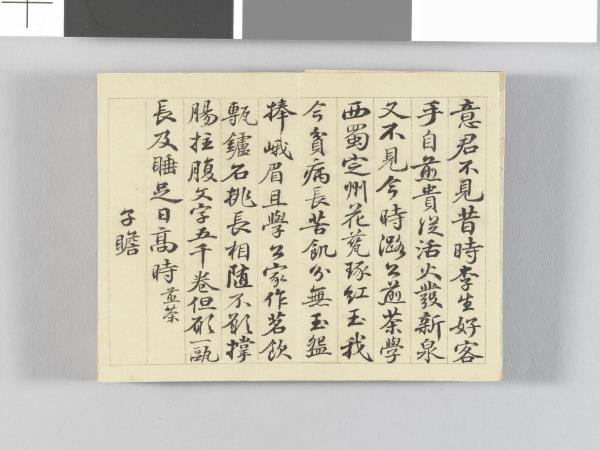 意君不見昔時李生好客
手自煎貴從活火發新泉
又不見今時潞公煎茶學
西蜀定州花甆琢紅玉我
今貧病長苦飢分無玉盌
捧峨眉且學公家作茗飲
甎鑪石挑長相隨不願撐
腸拄腹文字五千卷但願一甌
長及睡足日高時 煎茶
子瞻